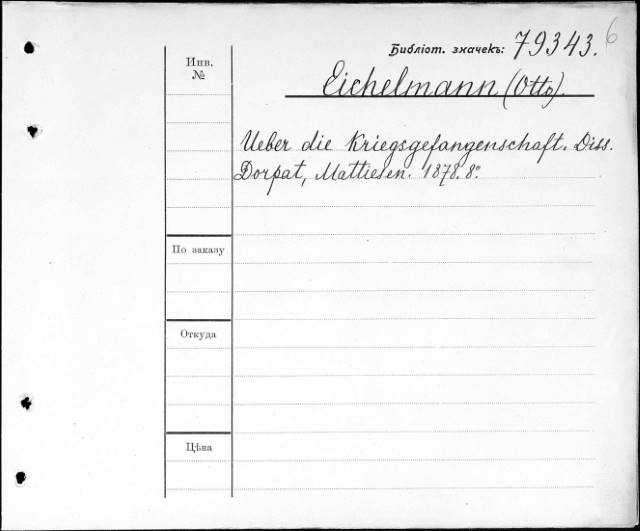 Библіот. значекъ: 79343. 6
Инв. №
Eichelmann (Otto).
Ueber die Kriegsgefangenschaft. Diss.
Dorpat, Mattiesen. 1878. 8°.
По заказу
Откуда
Цѣна